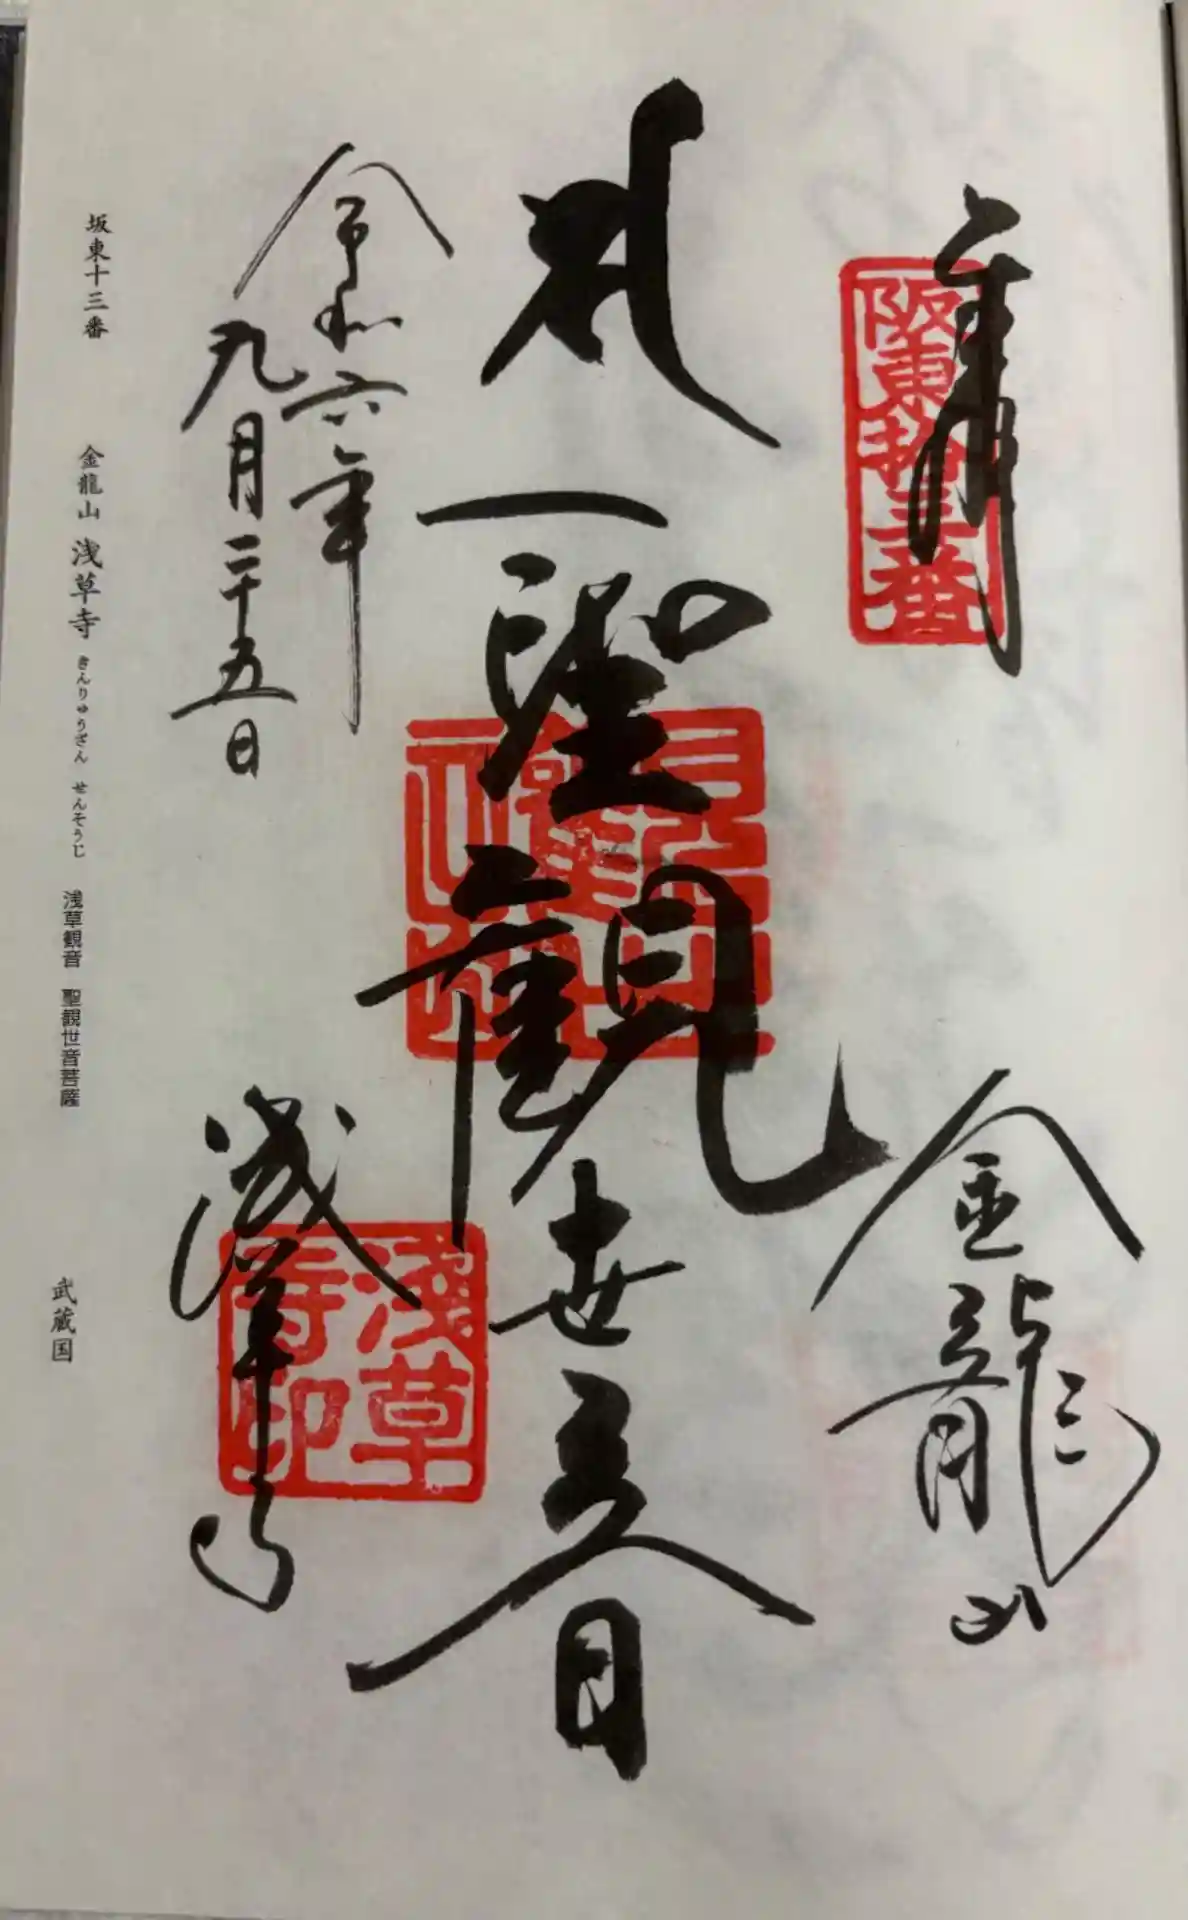 奉拝
阪東拾三番
金龍山
聖観世音
令和六年
九月二十五日
浅草寺
浅草
寺印
坂東十三番 金龍山 浅草寺 きんりゅうざん せんそうじ 浅草観音 聖観世音菩薩 武蔵国